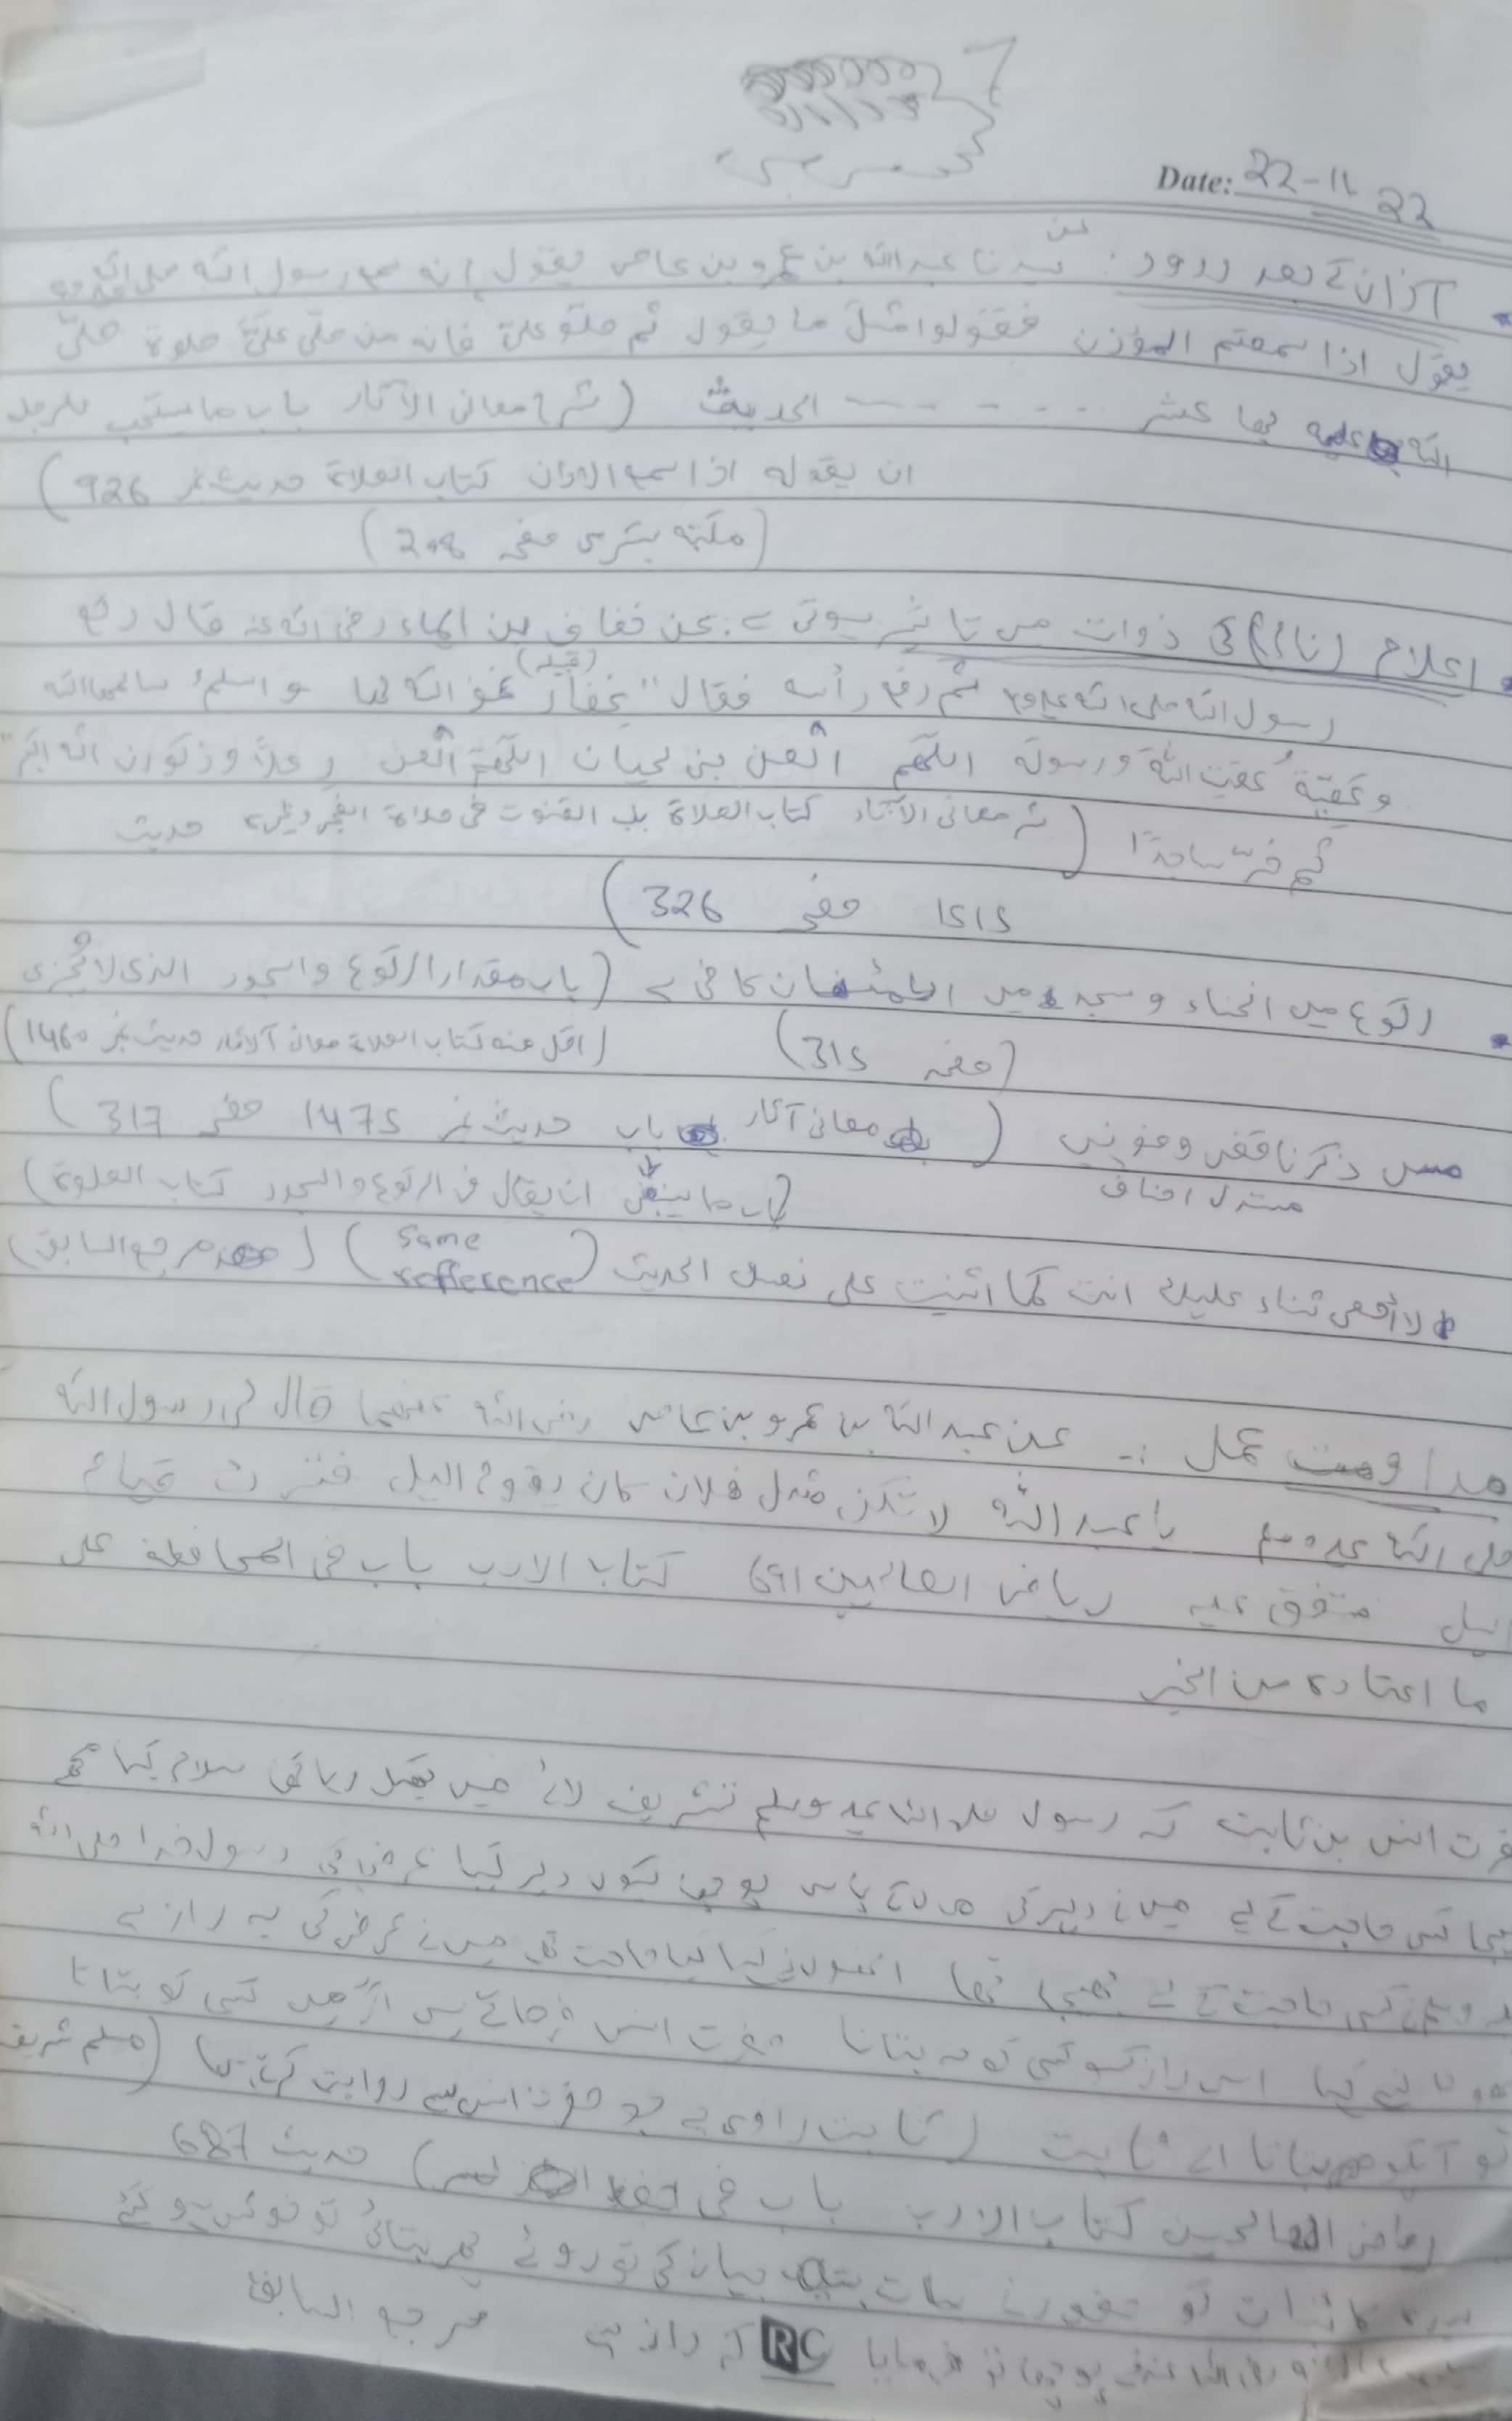 Date: 22-11-22
آذان کے بعد درود : عن سیدنا عبد اللہ بن عمرو بن عاص یقول انہ سمع رسول اللہ صلی اللہ علیہ
یقول اذا سمعتم المؤذن فقولوا مثل ما یقول ثم صلوا علیّ فانہ من صلّی علیّ صلوۃ صلّی
اللہ علیہ بہا عشر ۔ ۔ ۔ ۔ ۔ الحدیث (شرح معانی الآثار باب ما یستحب للرجل
ان یقولہ اذا سمع الاذان کتاب الصلاۃ حدیث نمبر 926)
(مکتبہ بشری صفحہ 208)
اعلام (نام) کی ذوات میں تاثیر ہوتی ہے : عن خفاف بن ایماء رضی اللہ عنہ قال رکع
رسول اللہ صلی اللہ علیہ وسلم ثم رفع رأسہ فقال "غفار (قبیلہ) غفر اللہ لہا و اسلم سالمہا اللہ
و عُصَیّۃ عصت اللہ و رسولہ اللھم العن بنی لحیان اللھم العن رعلاً و ذکوان اللہ اکبر"
ثم خرّ ساجدًا (شرح معانی الآثار کتاب الصلاۃ باب القنوت فی صلاۃ الفجر وغیرہ حدیث
1515 صفحہ 326)
رکوع میں انحناء و سجدہ میں اطمئنان کافی ہے (باب مقدار الرکوع والسجود الذی لا یُجزی
(صفحہ 315) (اقل منہ کتاب الصلاۃ معانی آلاثار حدیث نمبر 1460)
(معانی آثار باب حدیث نمبر 1475 صفحہ 317)
مستدل احناف (باب ما ینبغی ان یقال فی الرکوع والسجود کتاب الصلوۃ)
لا أحصی ثناء علیک انت کما اثنیت علی نفسک الحدیث (same refference) (مرجع السابق)
مداومت عمل :۔ عن عبد اللہ بن عمرو بن عاص رضی اللہ عنھما قال لی رسول اللہ
صلی اللہ علیہ وسلم یا عبد اللہ لا تکن مثل فلان کان یقوم الیل فترک قیام
الیل متفق علیہ ریاض الصالحین 691 کتاب الادب باب فی المحافظۃ علی
ما اعتادہ من الخیر
انس بن ثابت کہ رسول صلی اللہ علیہ وسلم تشریف لائے میں کھیل رہا تھا سلام کیا مجھے
کسی حاجت کے لیے میں نے دیر کی ماں کے پاس پوچھا کیوں دیر کیا عرض کی رسول خدا صلی اللہ
وسلم نے کسی حاجت کے لے بھیجا تھا انھوں نے کہا کیا حاجت تھی میں نے عرض کی یہ راز ہے
کہا اس راز کو کسی کو نہ بتانا حضرت انس فرماتے ہیں اگر میں کسی کو بتاتا
تو آپکو بتاتا اے ثابت (ثابت راوی ہے جو حضرت انس سے روایت کرتے (مسلم شریف
ریاض الصالحین کتاب الادب باب فی حفظ السر) حدیث 687
کائنات کو حضور نے بات بیان کی تو روئے پھر بتائی تو خوش ہو گئے
رضی اللہ عنہ پوچھا تو فرمایا کہ راز ہے مرجع السابق
RC